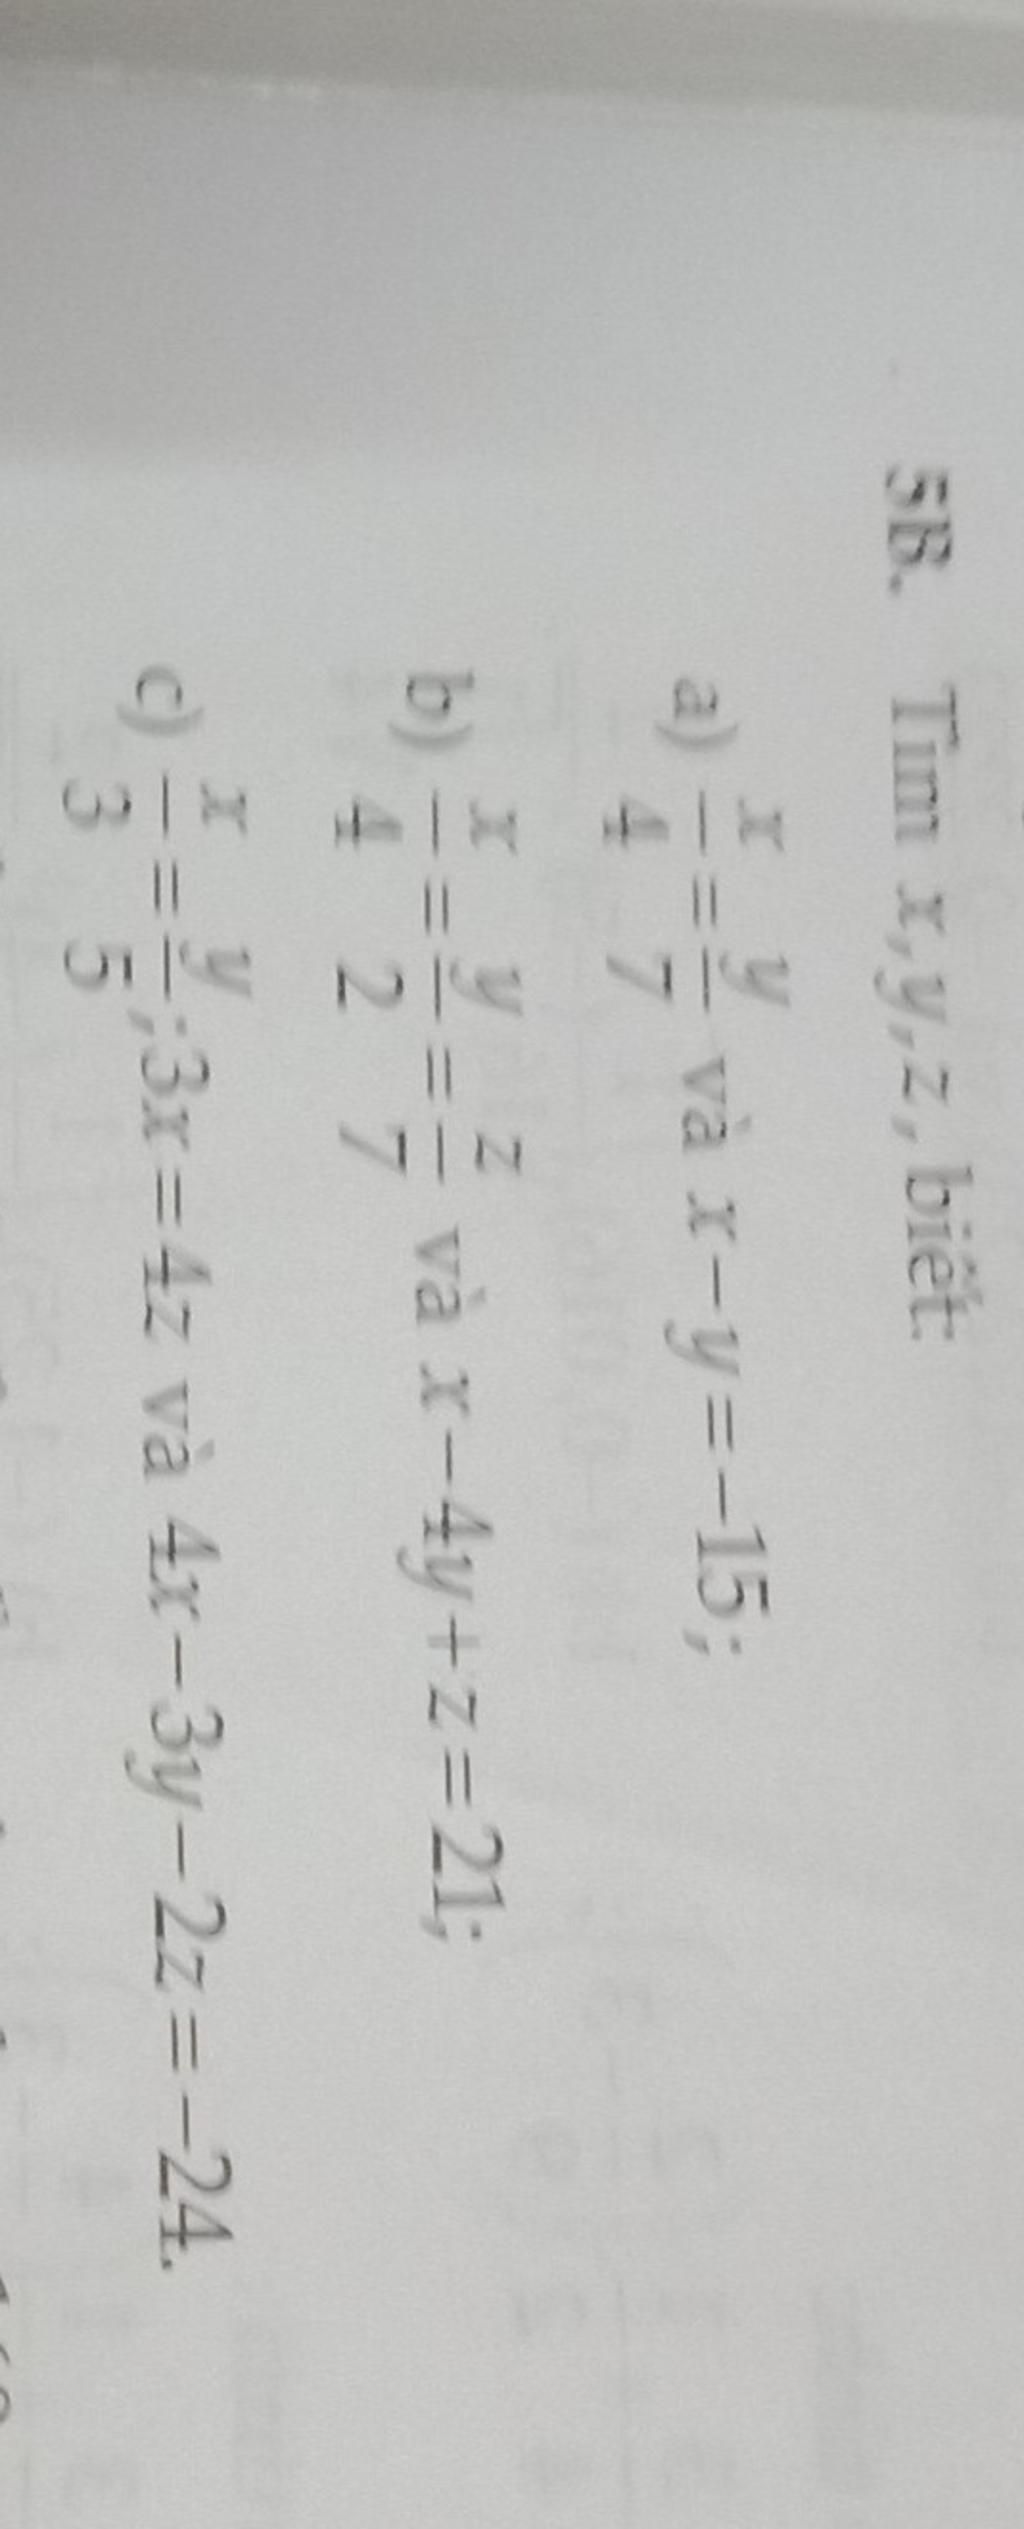 5B. Tìm x,y,z, biết:
a) x/4 = y/7 và x−y=−15;
b) x/4 = y/2 = z/7 và x−4y+z=21;
c) x/3 = y/5; 3x=4z và 4x−3y−2z=−24.